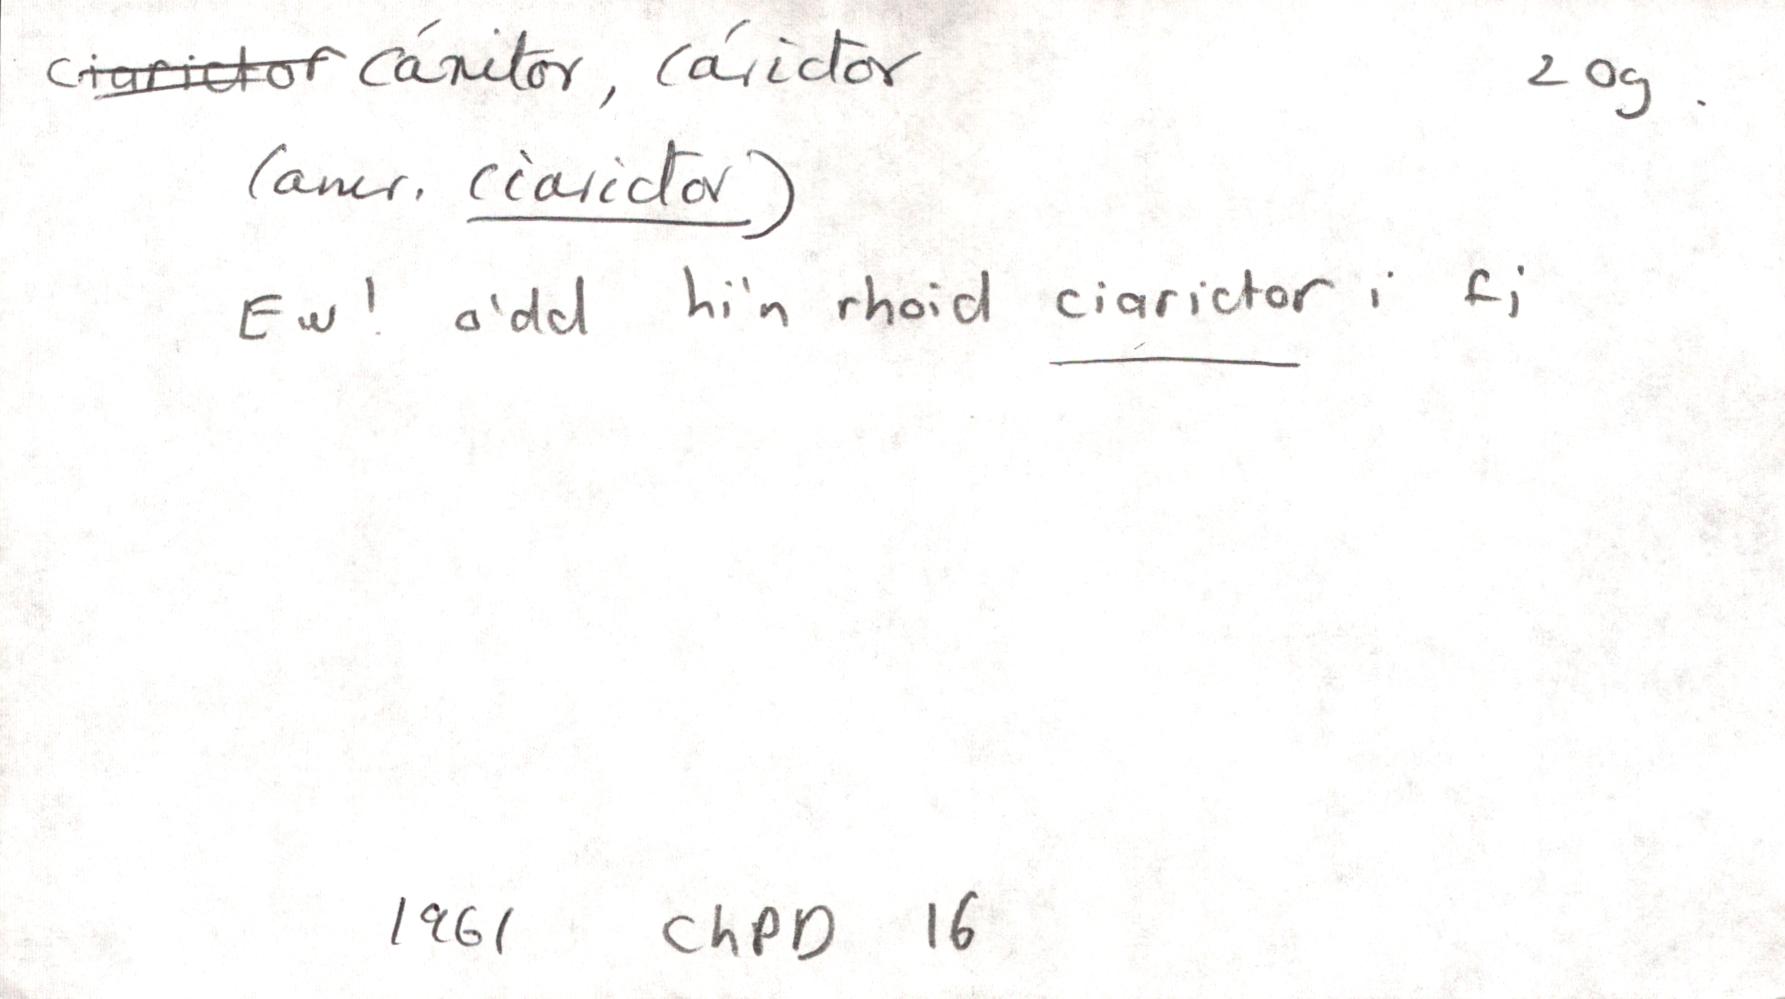 ciarictor cáritor, cárictor 20g.
(amr. ciarictor)
Ew! o'dd hi'n rhoid ciarictor i fi
1961 ChPD 16